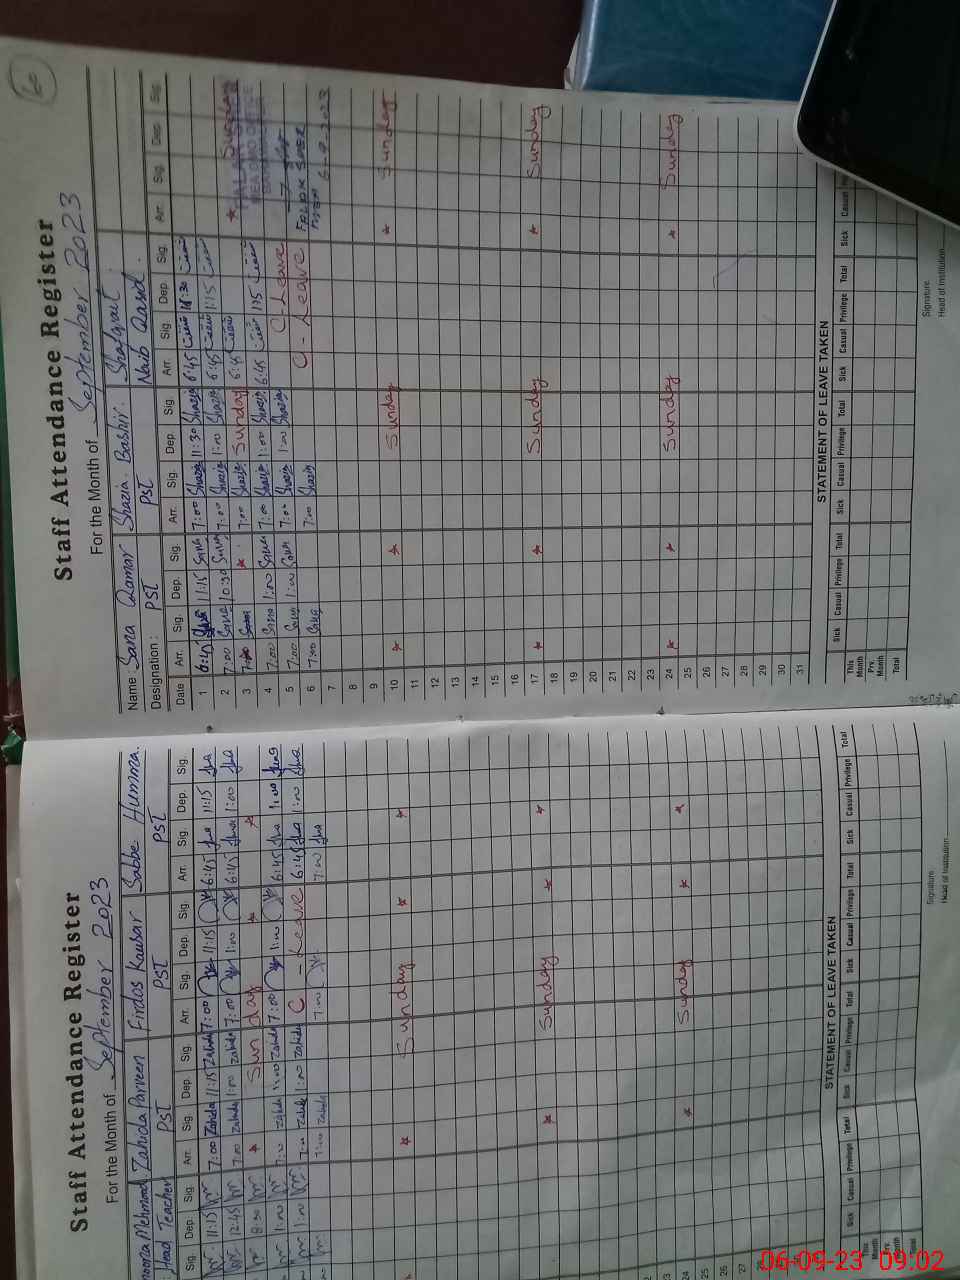 Staff Attendance Register
For the Month of September 2023
Mehmood Zahida Parveen Firdos Kausar Sabbe Humma.
Head Teacher PST PST PST
Sig. Dep. Sig. Arr. Sig. Dep. Sig. Arr. Sig. Dep. Sig. Arr. Sig. Dep. Sig.
11:15 7:00 Zahida 11:15 Zahida 7:00 11:15 6:45 11:15
12:45 7:00 Zahida 1:00 Zahida 7:00 1:00 6:45 1:00
8:30 * Sunday * *
1:00 7:00 Zahida 1:00 Zahida 7:00 1:00 6:45 1:00
1:00 7:00 Zahida 1:00 Zahida C - Leave 6:45 1:00
7:00 Zahida 7:00 7:00
* Sunday * *
* Sunday * *
* Sunday * *
STATEMENT OF LEAVE TAKEN
Sick Casual Privilege Total Sick Casual Privilege Total Sick Casual Privilege Total Sick Casual Privilege Total
This Month
Prv. Month
Total
Signature
Head of Institution
60
Staff Attendance Register
For the Month of September 2023
Name Sana Qamar Shazia Bashir. Shafqait
Designation: PST PST Naib Qasid.
Date Arr. Sig. Dep. Sig. Arr. Sig. Dep. Sig. Arr. Sig. Dep. Sig. Arr. Sig. Dep. Sig.
1 6:45 11:15 Sana 7:00 Shazia 11:30 Shazia 6:45 11:30
2 7:00 Sana 10:30 Sana 7:00 Shazia 1:00 Shazia 6:45 1:15
3 * 7:00 Shazia Sunday 6:45 * Sunday
4 7:00 Sana 1:00 Sana 7:00 Shazia 1:00 Shazia 6:45 1:15
5 7:00 Sana 1:00 Sana 7:00 Shazia 1:00 Shazia C - Leave
6 7:00 Sana 7:00 Shazia C - Leave
7
8
9
10 * * Sunday * Sunday
11
12
13
14
15
16
17 * * Sunday * Sunday
18
19
20
21
22
23
24 * * Sunday * Sunday
25
26
27
28
29
30
31
STATEMENT OF LEAVE TAKEN
Sick Casual Privilege Total Sick Casual Privilege Total Sick Casual Privilege Total Sick Casual
This Month
Prv. Month
Total
Signature
Head of Institution
06-09-23 09:02